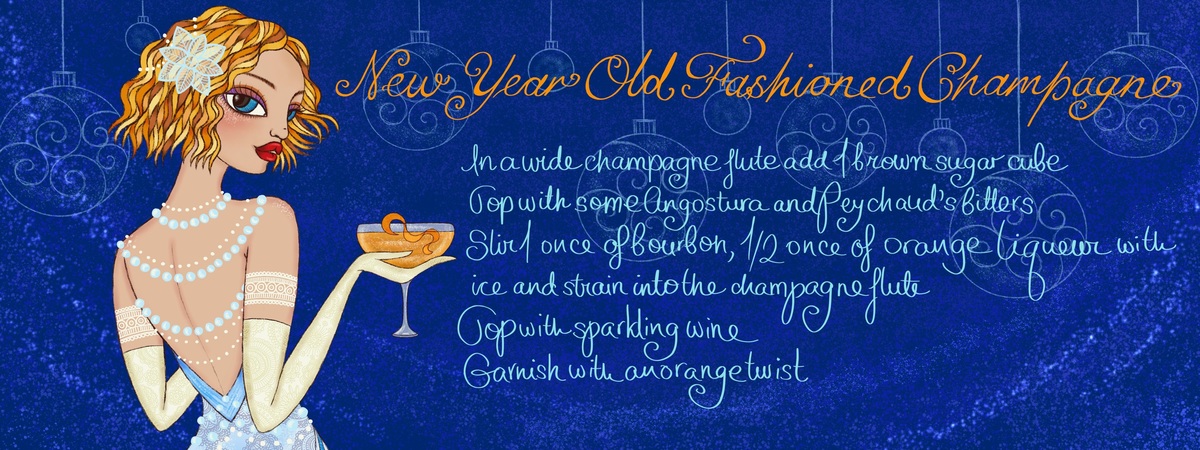 New Year Old Fashioned Champagne
In a wide champagne flute add 1 brown sugar cube
Top with some Angostura and Peychaud's bitters
Stir 1 once of bourbon, 1/2 once of orange liqueur with
ice and strain into the champagne flute
Top with sparkling wine
Garnish with an orange twist